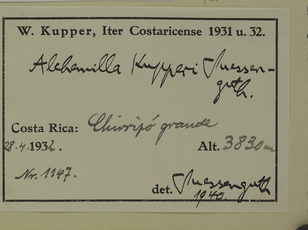 W. Kupper, Iter Costaricense 1931 u. 32.
Alchemilla Kupperi Suessen-
guth.
Costa Rica: Chirripó grande
28.4.1932. Alt. 3830 m
Nr. 1147.
det. Suessenguth
1940.